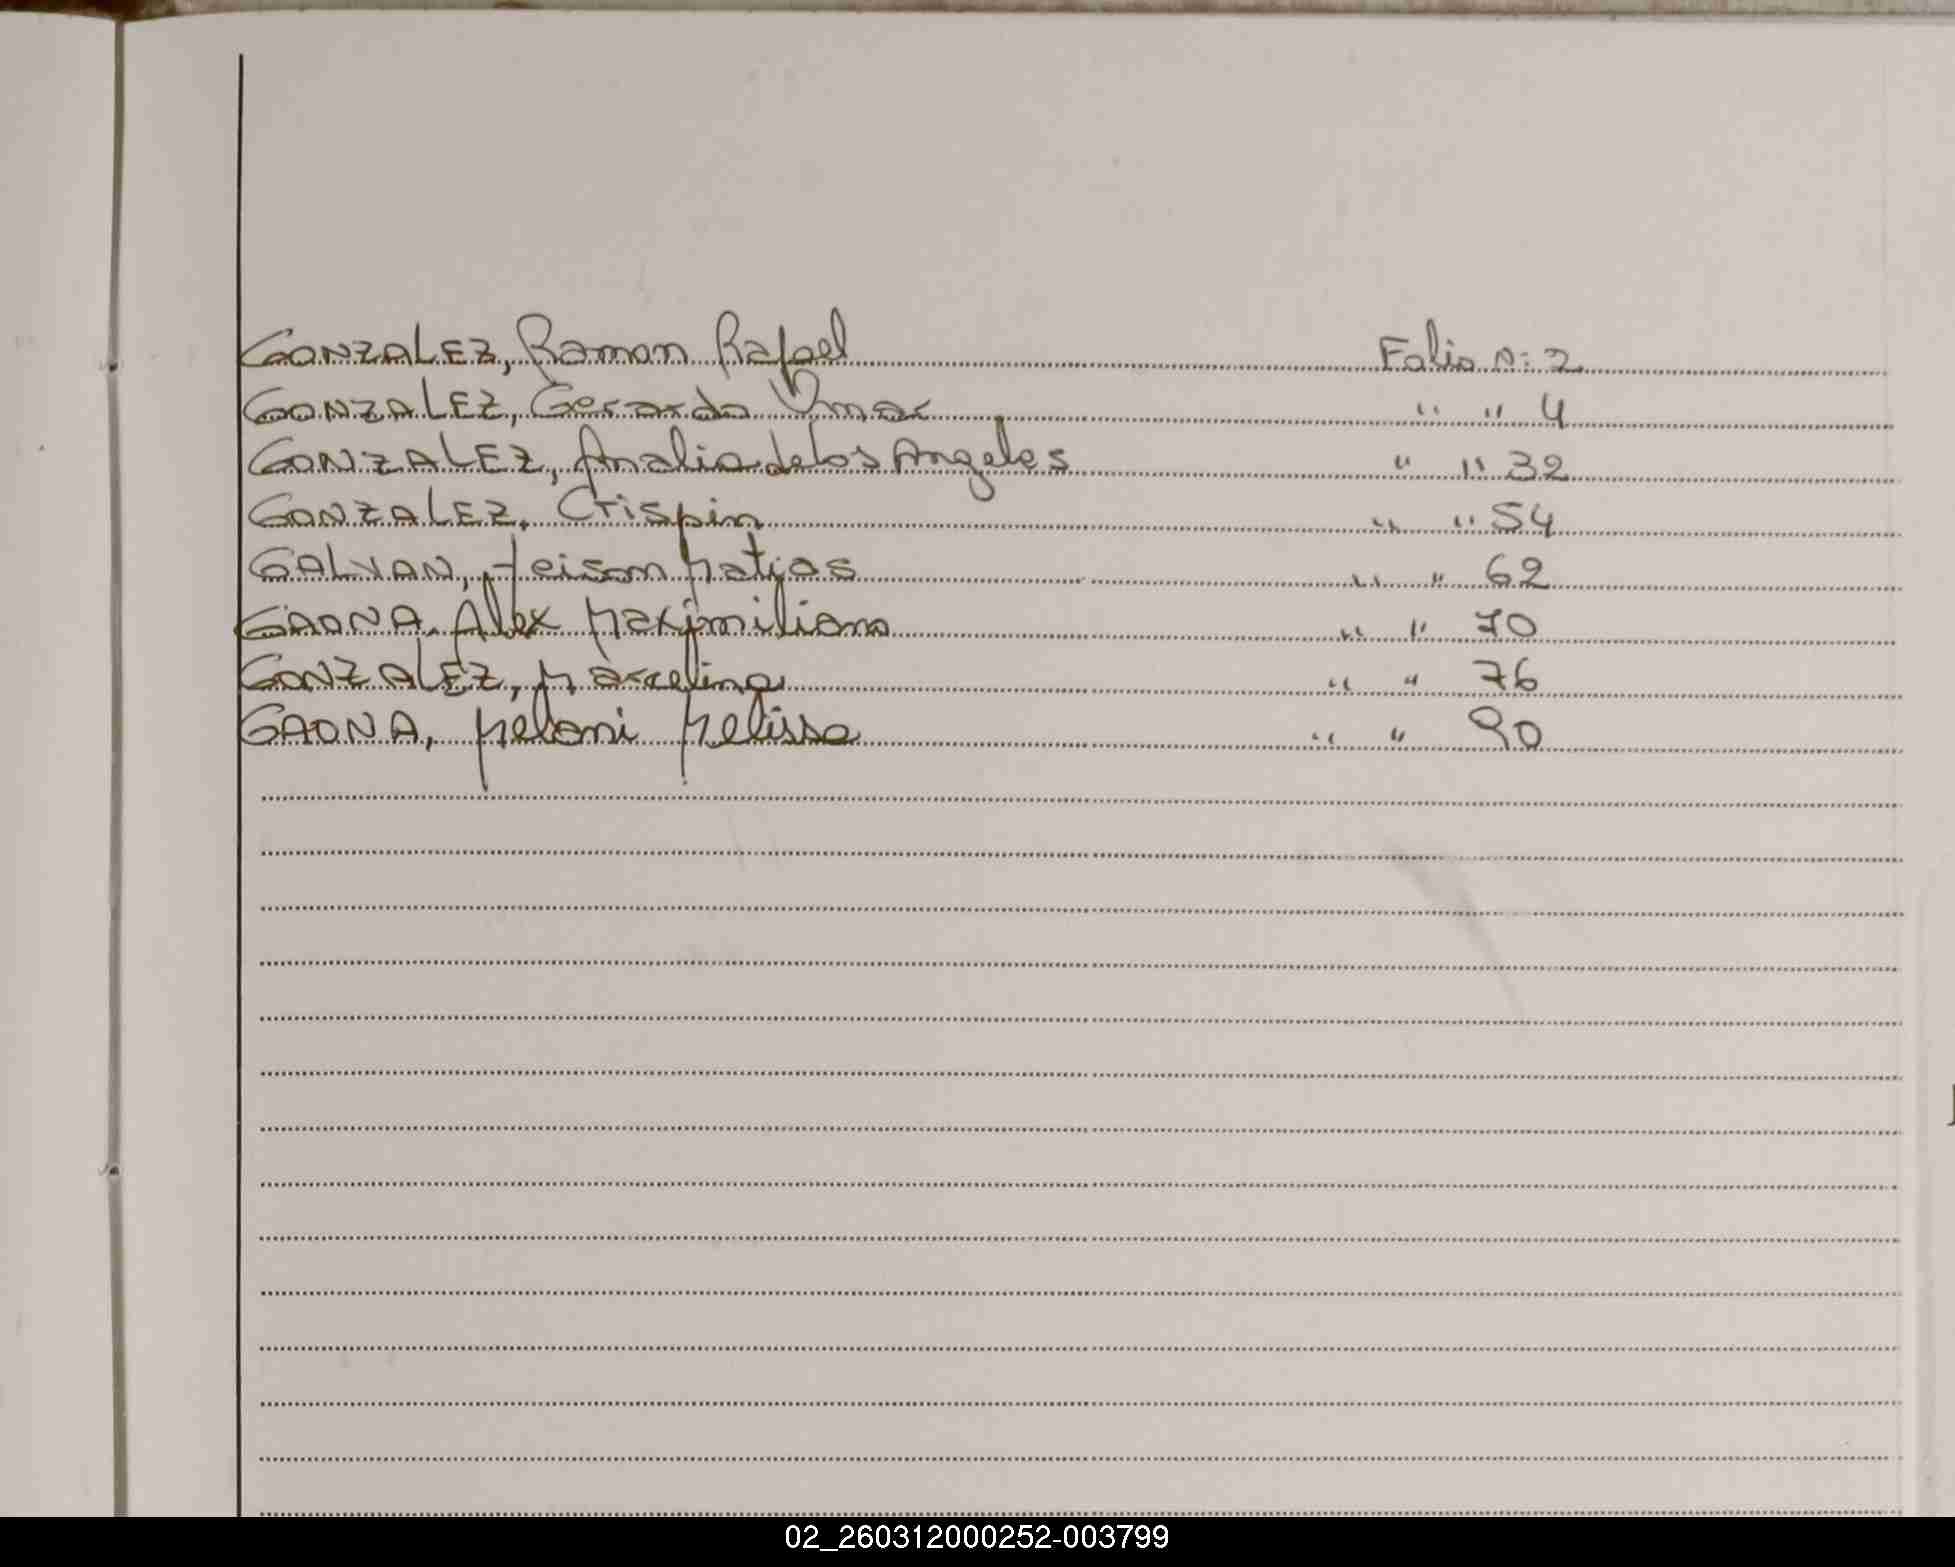 GONZALEZ, Ramon Rafael Folio n: 2
GONZALEZ, Gerardo Omar " " 4
GONZALEZ, Analia de los Angeles " " 32
GONZALEZ, Crispin " " 54
GALVAN, Jeison Matias " " 62
GAONA, Alex Maximiliano " " 70
GONZALEZ, Marcelina " " 76
GAONA, Meloni Melissa " " 90
02_260312000252-003799